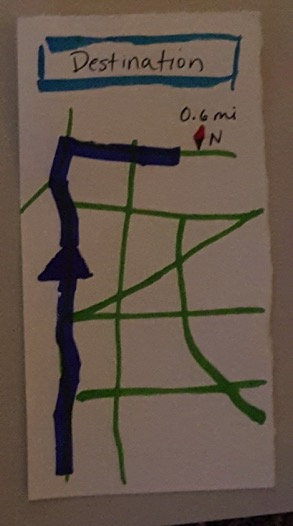 Destination
0.6 mi
N